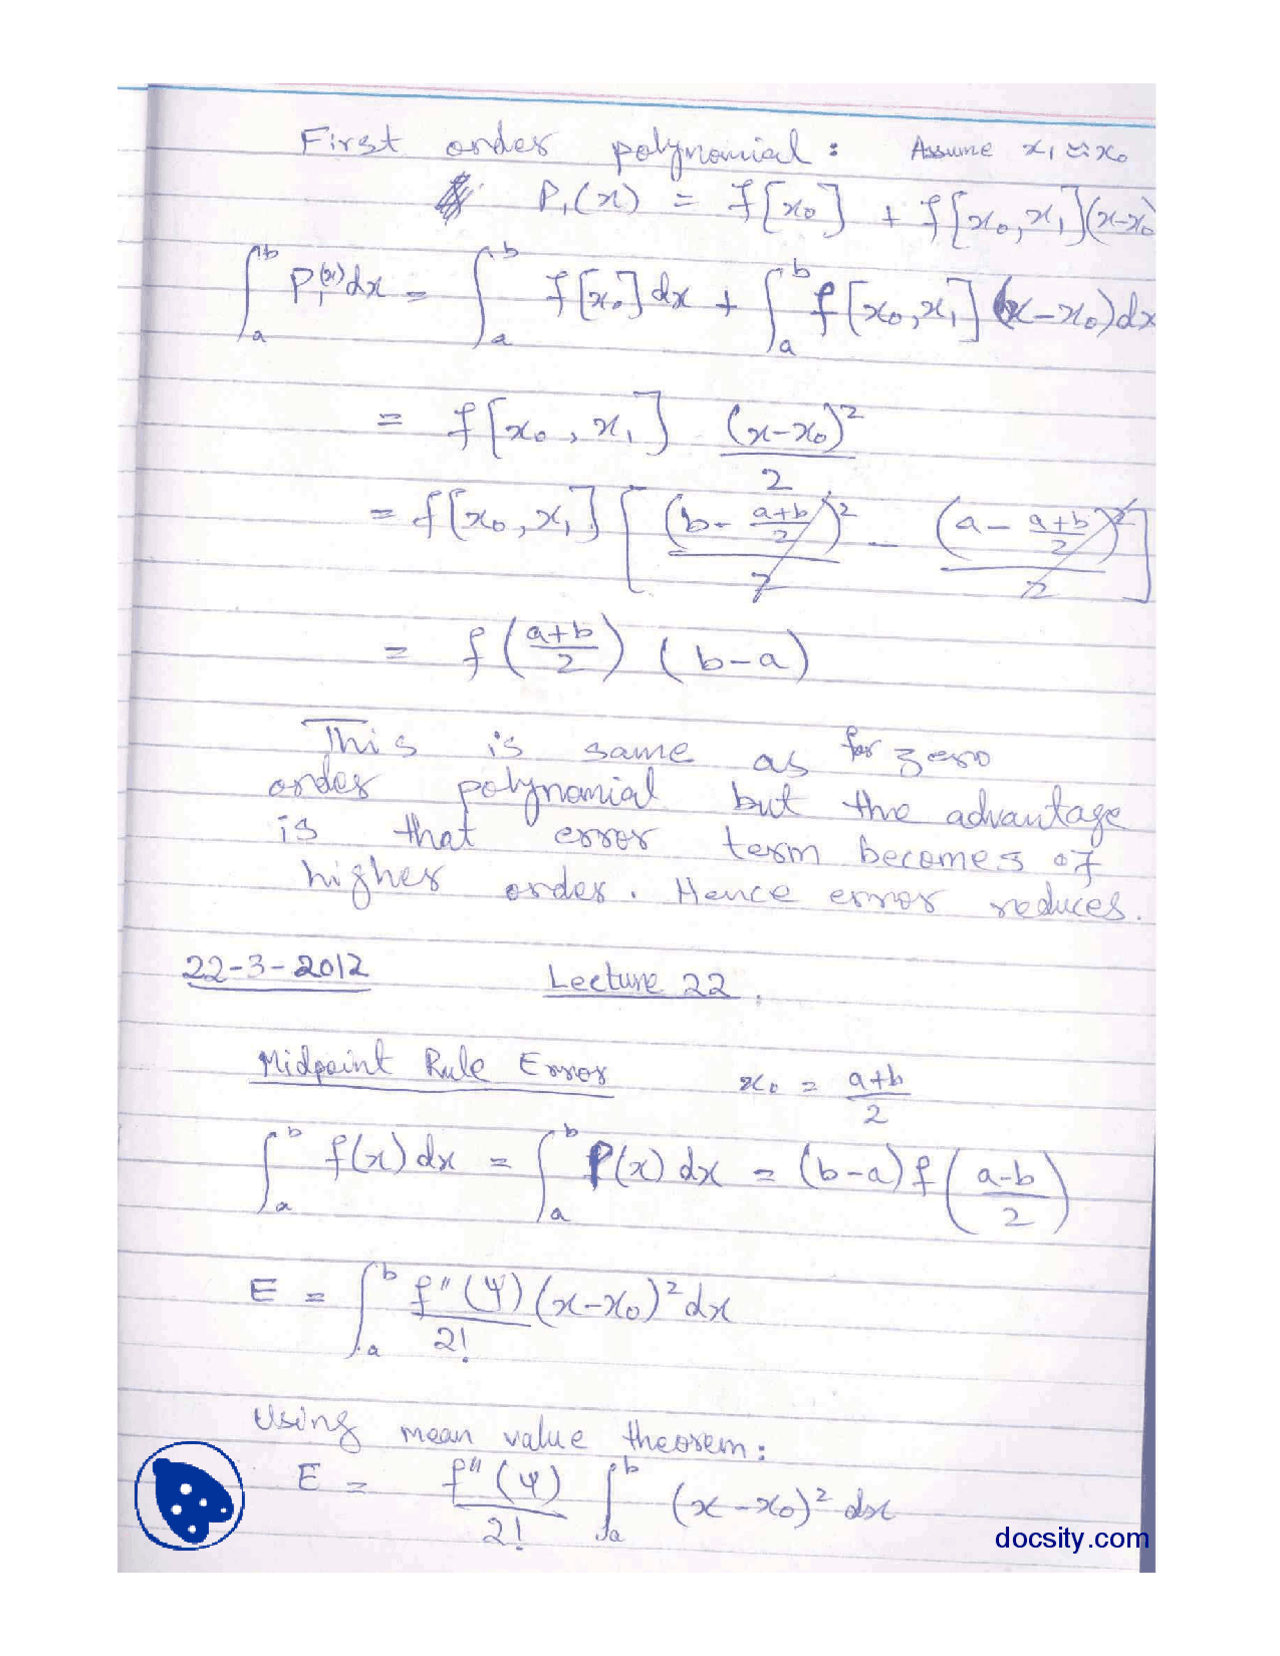 First order polynomial : Assume x₁ ≈ x₀
P₁(x) = f[x₀] + f[x₀, x₁](x-x₀)
∫ₐᵇ P₁(x) dx = ∫ₐᵇ f[x₀] dx + ∫ₐᵇ f[x₀, x₁] (x-x₀) dx
= f[x₀, x₁] (x-x₀)²/2
= f[x₀, x₁] [ (b - (a+b)/2)²/2 - (a - (a+b)/2)²/2 ]
= f((a+b)/2) (b-a)
This is same as for zero
order polynomial but the advantage
is that error term becomes of
higher order. Hence error reduces.
22-3-2012 Lecture 22.
Midpoint Rule Error x₀ = (a+b)/2
∫ₐᵇ f(x) dx = ∫ₐᵇ P(x) dx = (b-a) f((a-b)/2)
E = ∫ₐᵇ f''(ψ)/2! (x-x₀)² dx
Using mean value theorem:
E = f''(ψ)/2! ∫ₐᵇ (x-x₀)² dx
docsity.com